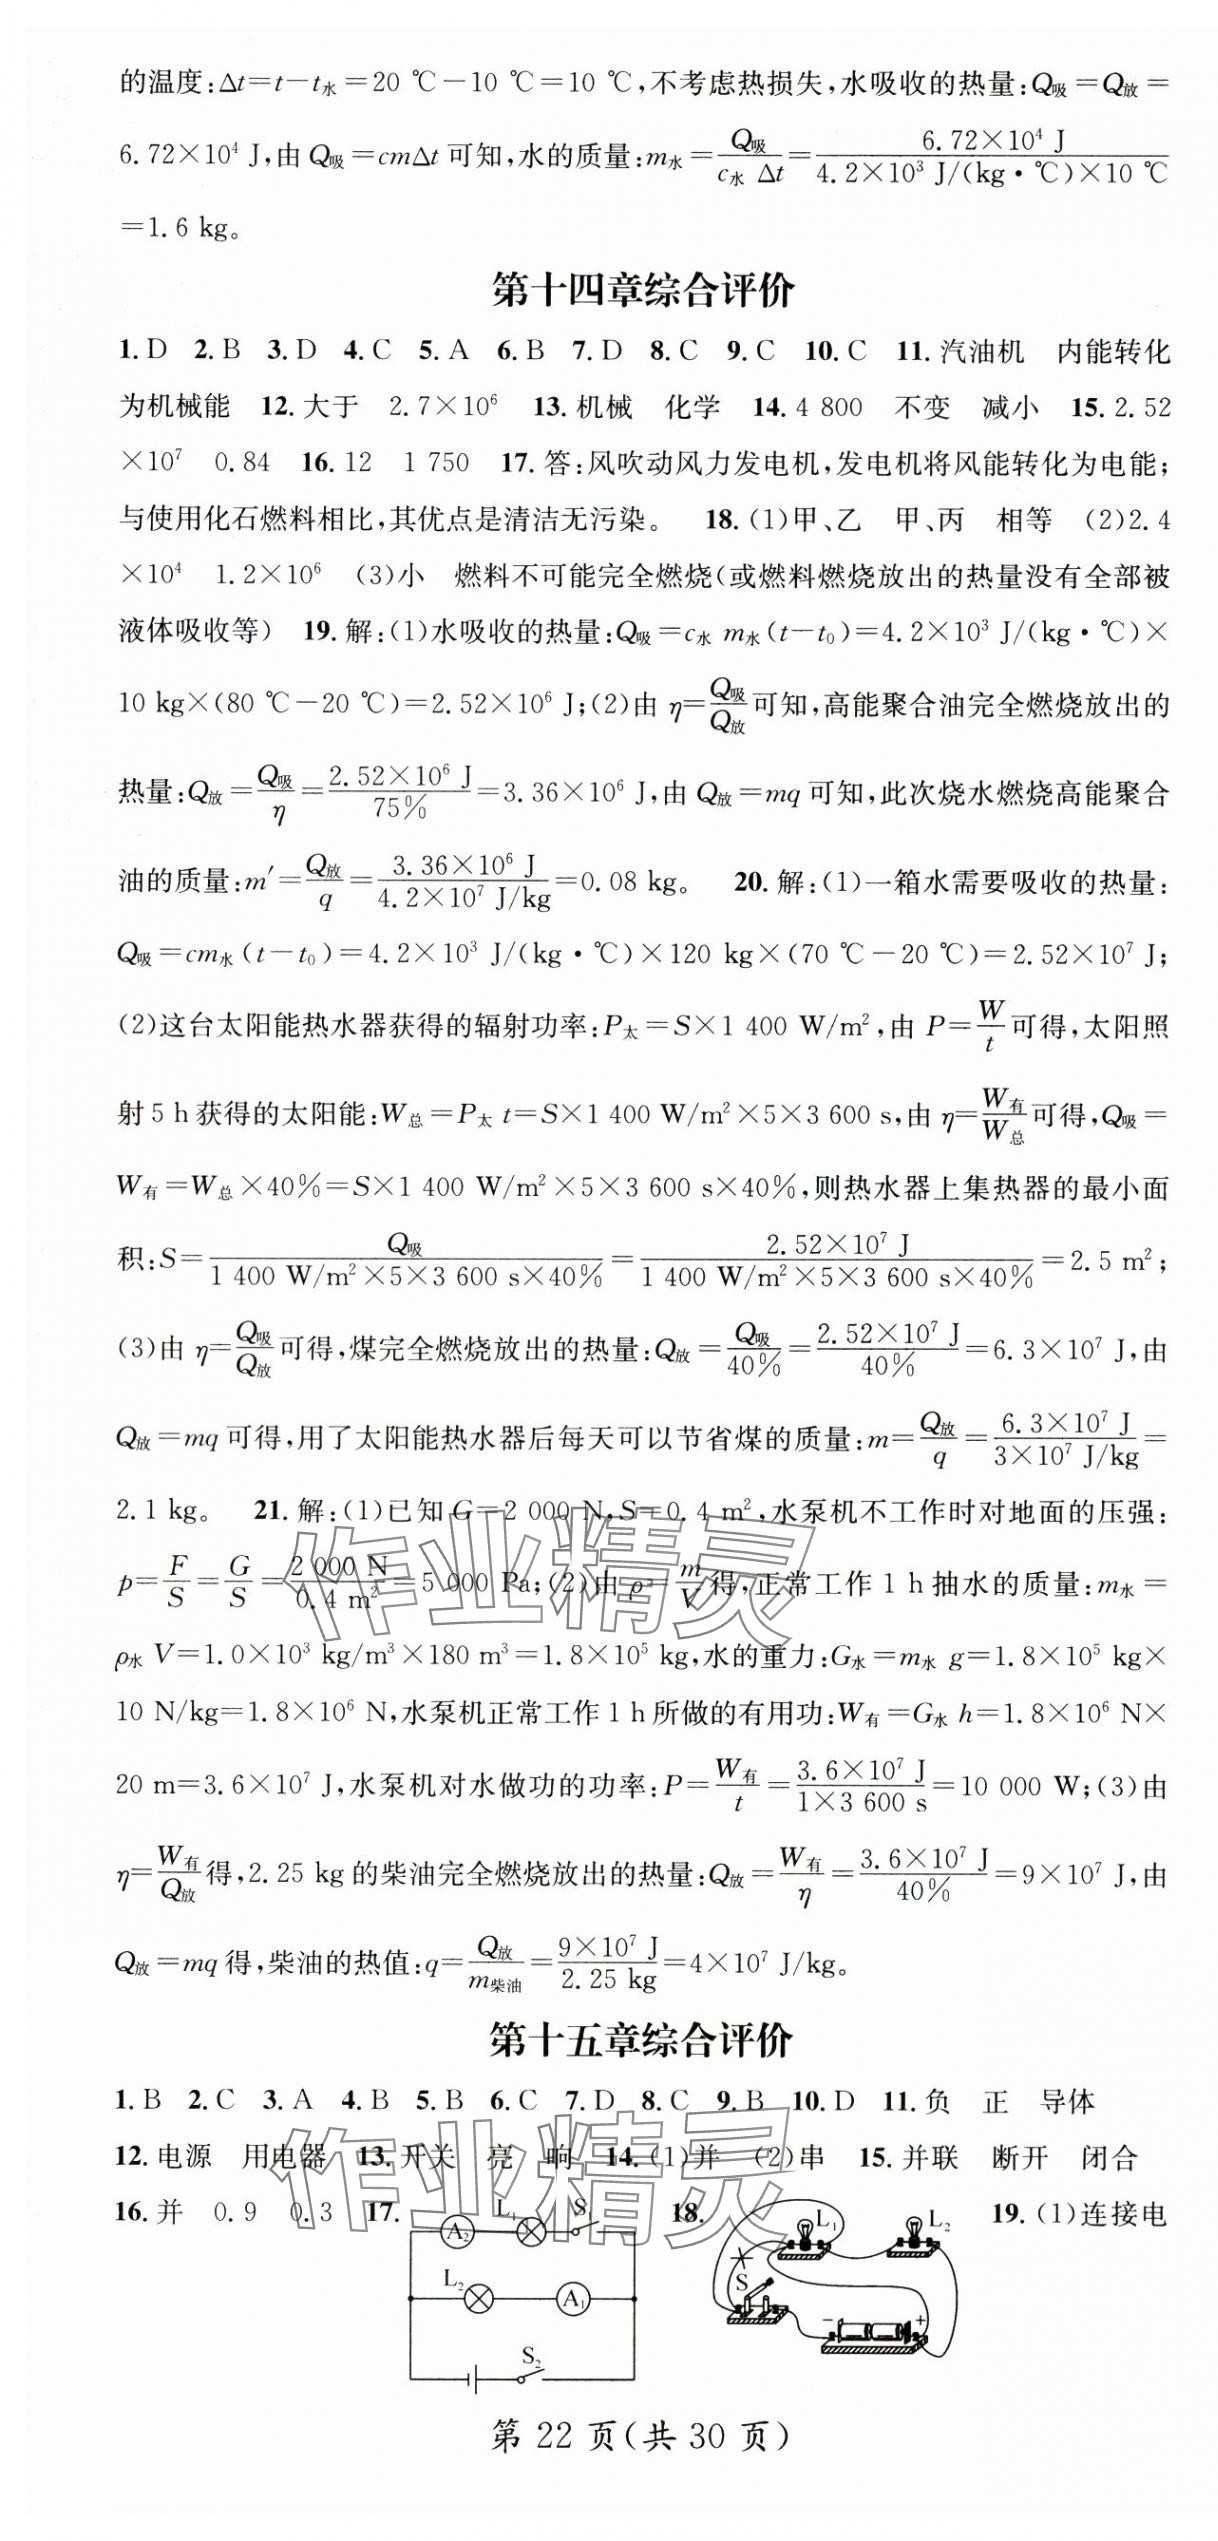 的温度:Δt=t-t水=20 ℃-10 ℃=10 ℃,不考虑热损失,水吸收的热量:Q吸=Q放=
6.72×10⁴ J,由 Q吸=cmΔt 可知,水的质量:m水=Q吸/(c水 Δt)=6.72×10⁴ J/(4.2×10³ J/(kg·℃)×10 ℃)
=1.6 kg。
第十四章综合评价
1.D 2.B 3.D 4.C 5.A 6.B 7.D 8.C 9.C 10.C 11.汽油机 内能转化
为机械能 12.大于 2.7×10⁶ 13.机械 化学 14.4 800 不变 减小 15.2.52
×10⁷ 0.84 16.12 1 750 17.答:风吹动风力发电机,发电机将风能转化为电能;
与使用化石燃料相比,其优点是清洁无污染。 18.(1)甲、乙 甲、丙 相等 (2)2.4
×10⁴ 1.2×10⁶ (3)小 燃料不可能完全燃烧(或燃料燃烧放出的热量没有全部被
液体吸收等) 19.解:(1)水吸收的热量:Q吸=c水 m水(t-t₀)=4.2×10³ J/(kg·℃)×
10 kg×(80 ℃-20 ℃)=2.52×10⁶ J;(2)由 η=Q吸/Q放可知,高能聚合油完全燃烧放出的
热量:Q放=Q吸/η=2.52×10⁶ J/75%=3.36×10⁶ J,由 Q放=mq 可知,此次烧水燃烧高能聚合
油的质量:m′=Q放/q=3.36×10⁶ J/(4.2×10⁷ J/kg)=0.08 kg。 20.解:(1)一箱水需要吸收的热量:
Q吸=cm水(t-t₀)=4.2×10³ J/(kg·℃)×120 kg×(70 ℃-20 ℃)=2.52×10⁷ J;
(2)这台太阳能热水器获得的辐射功率:P太=S×1 400 W/m²,由 P=W/t可得,太阳照
射 5 h 获得的太阳能:W总=P太 t=S×1 400 W/m²×5×3 600 s,由 η=W有/W总可得,Q吸=
W有=W总×40%=S×1 400 W/m²×5×3 600 s×40%,则热水器上集热器的最小面
积:S=Q吸/(1 400 W/m²×5×3 600 s×40%)=2.52×10⁷ J/(1 400 W/m²×5×3 600 s×40%)=2.5 m²;
(3)由 η=Q吸/Q放可得,煤完全燃烧放出的热量:Q放=Q吸/40%=2.52×10⁷ J/40%=6.3×10⁷ J,由
Q放=mq 可得,用了太阳能热水器后每天可以节省煤的质量:m=Q放/q=6.3×10⁷ J/(3×10⁷ J/kg)=
2.1 kg。 21.解:(1)已知 G=2 000 N,S=0.4 m²,水泵机不工作时对地面的压强:
p=F/S=G/S=2 000 N/0.4 m²=5 000 Pa;(2)由 ρ=m/V得,正常工作 1 h 抽水的质量:m水=
ρ水 V=1.0×10³ kg/m³×180 m³=1.8×10⁵ kg,水的重力:G水=m水 g=1.8×10⁵ kg×
10 N/kg=1.8×10⁶ N,水泵机正常工作 1 h 所做的有用功:W有=G水 h=1.8×10⁶ N×
20 m=3.6×10⁷ J,水泵机对水做功的功率:P=W有/t=3.6×10⁷ J/(1×3 600 s)=10 000 W;(3)由
η=W有/Q放得,2.25 kg 的柴油完全燃烧放出的热量:Q放=W有/η=3.6×10⁷ J/40%=9×10⁷ J,由
Q放=mq 得,柴油的热值:q=Q放/m柴油=9×10⁷ J/2.25 kg=4×10⁷ J/kg。
作业精灵
第十五章综合评价
1.B 2.C 3.A 4.B 5.B 6.C 7.D 8.C 9.B 10.D 11.负 正 导体
12.电源 用电器 13.开关 亮 响 14.(1)并 (2)串 15.并联 断开 闭合
16.并 0.9 0.3 17. 18. 19.(1)连接电
作业精灵
A₂ L₁ S₁
L₂ A₁
S₂
L₁ L₂
S
- +
第 22 页(共 30 页)